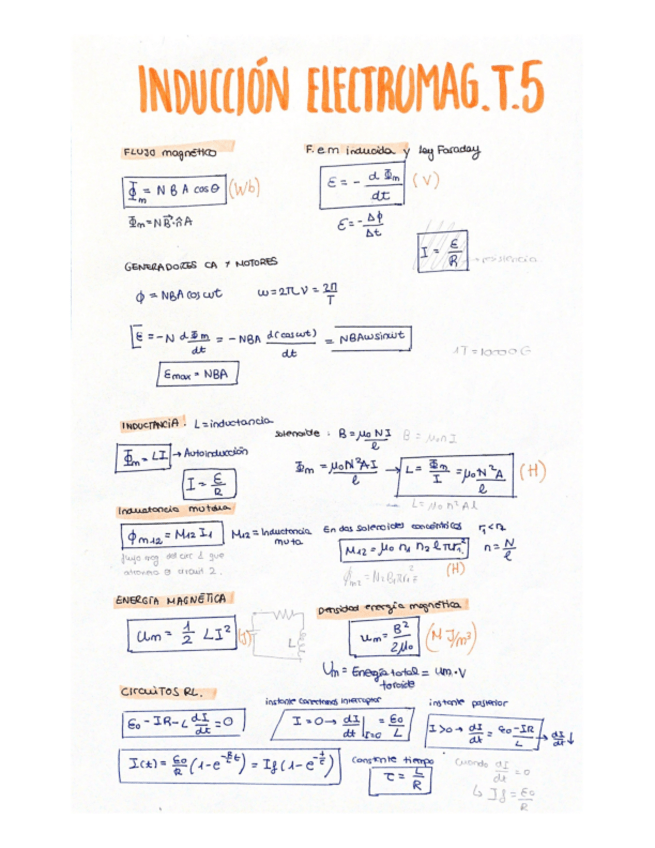 INDUCCIÓN ELECTROMAG. T.5
FLUJO magnético
Φm = N B A cosθ (Wb)
Φm = N B⃗·n̂ A
F.e.m inducida y ley Faraday
ε = - dΦm/dt (V)
ε = - Δϕ/Δt
I = ε/R → resistencia
GENERADORES CA Y MOTORES
ϕ = NBA cos ωt ω = 2πν = 2π/T
ε = -N dΦm/dt = -NBA d(cosωt)/dt = NBAω sinωt
1T = 10000 G
εmax = NBA
INDUCTANCIA. L = inductancia
Φm = LI → Autoinducción
I = ε/R
solenoide: B = μ0 NI/ℓ B = μ0 n I
Φm = μ0N²AI/ℓ → L = Φm/I = μ0 N²A/ℓ (H)
L = μ0 n² Aℓ
Inductancia mutua
ϕm12 = M12 I1 M12 = Inductancia muta
flujo mag del circ 1 que
atraviesa el circuit 2.
En dos solenoides concéntricos r1 < r2
M12 = μ0 n1 n2 ℓ π r1² n = N/ℓ
(H)
ENERGÍA MAGNÉTICA
Um = 1/2 LI² (J)
L
Densidad energía magnética
um = B²/2μ0 (N J/m³)
Um = Energía total = um · V
toroide
CIRCUITOS RL.
ε0 - IR - L dI/dt = 0
instante conectamos interruptor
I = 0 → dI/dt |I=0 = ε0/L
instante posterior
I > 0 → dI/dt = ε0 - IR/L → dI/dt ↓
I(t) = ε0/R (1 - e^(-R/L t)) = If (1 - e^(-t/τ))
constante tiempo
τ = L/R
Cuando dI/dt = 0
↳ If = ε0/R